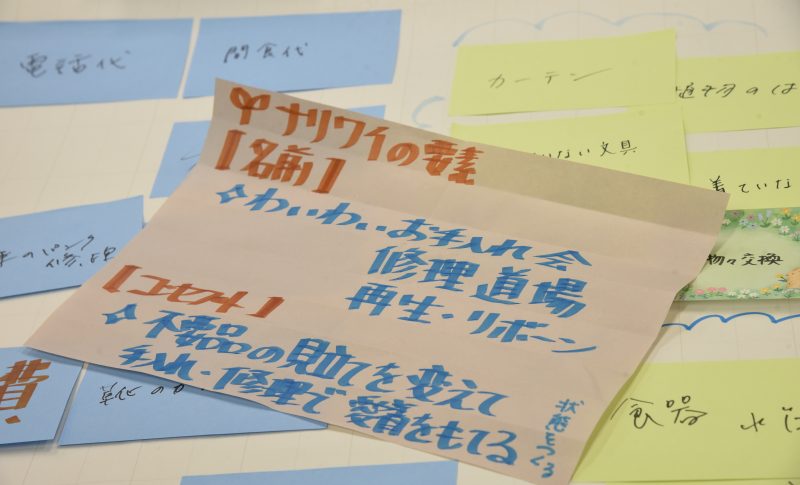 電話代
間食代
カーテン
ナリワイの要素
【名前】
わいわいお手入れ会
修理道場
再生・リボーン
【コンセプト】
不要品の見立てを変えて
手入れ・修理で愛着をもてる
状態をつくる
いない文具
着ていな
物々交換
のパンク
修理
費
食器